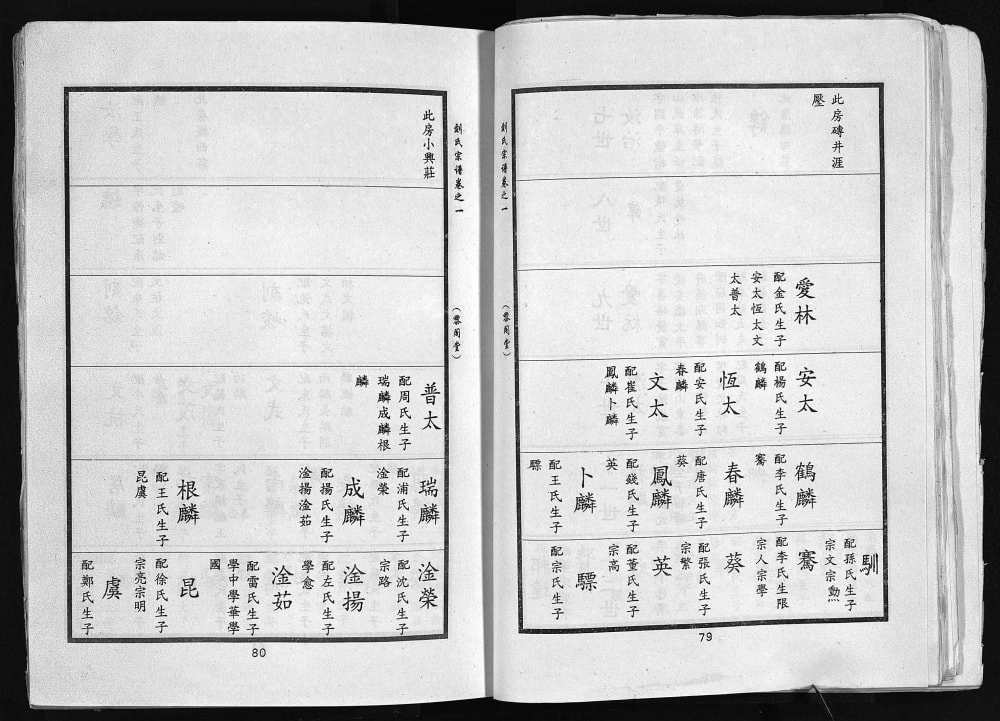 此房磚井涯
壓
愛林
配金氏生子
安太恆太文
太普太
安太
配楊氏生子
鶴麟
恆太
配安氏生子
春麟
文太
配崔氏生子
鳳麟卜麟
鶴麟
配李氏生子
騫
春麟
配唐氏生子
葵
鳳麟
配錢氏生子
英
卜麟
配王氏生子
驃
馴
配孫氏生子
宗文宗勲
騫
配李氏生限
宗人宗學
葵
配張氏生子
宗繁
英
配董氏生子
宗高
驃
配宗氏生子
79
劉氏宗譜卷之一
(黎閣堂)
劉氏宗譜卷之一
(黎閣堂)
此房小興莊
普太
配周氏生子
瑞麟成麟根
麟
瑞麟
配浦氏生子
淦榮
成麟
配揚氏生子
淦揚淦茹
根麟
配王氏生子
昆虞
淦榮
配沈氏生子
宗路
淦揚
配左氏生子
學愈
淦茹
配雷氏生子
學中學華學
國
昆
配徐氏生子
宗亮宗明
虞
配鄭氏生子
80